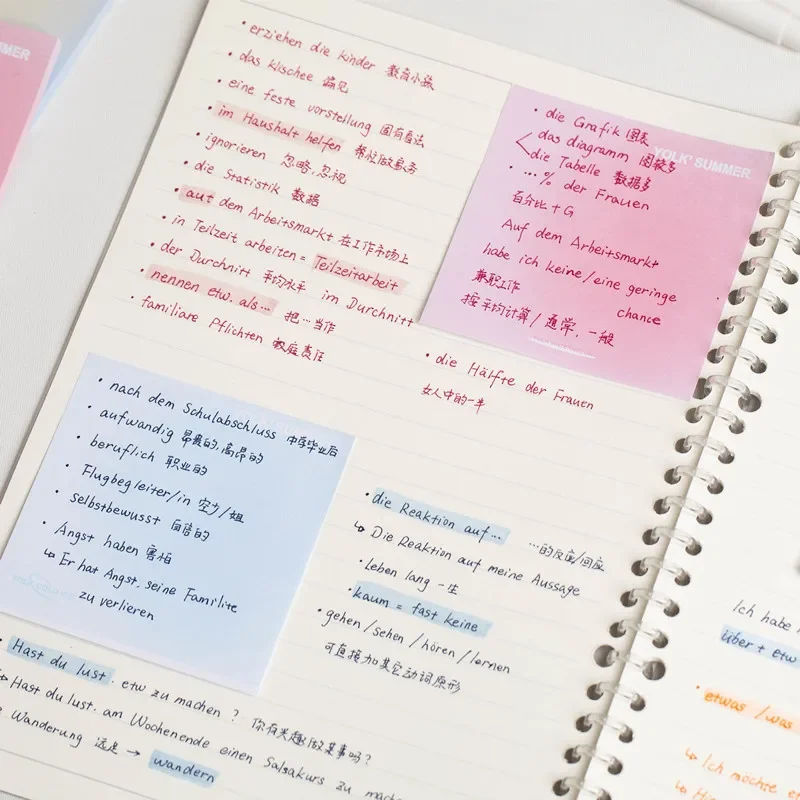 MER
• erziehen die kinder 教育小孩
• das klischee 偏见
• eine feste vorstellung 固有看法
• im Haushalt helfen 帮忙做家务
• ignorieren 忽略,忽视
• die Statistik 数据
• auf dem Arbeitsmarkt 在工作市场上
• in Teilzeit arbeiten = Teilzeitarbeit
• der Durchnitt 平均水平 im Durchnitt
• nennen etw. als... 把…当作
• familiare Pflichten 家庭责任
YOLK' SUMMER
• die Grafik 图表
das diagramm 图较多
die Tabelle 数据多
• ...% der Frauen
百分比+G
Auf dem Arbeitsmarkt
habe ich keine/eine geringe
chance
兼职工作
按平均计算/通常,一般
• die Hälfte der Frauen
女人中的一半
• nach dem Schulabschluss 中学毕业后
• aufwandig 昂贵的,高昂的
• beruflich 职业的
• Flugbegleiter/in 空少/姐
• selbstbewusst 自信的
• Angst haben 害怕
↳ Er hat Angst, seine Familite
zu verlieren
• die Reaktion auf... ...的反应/回应
↳ Die Reaktion auf meine Aussage
• Leben lang 一生
• kaum = fast keine
• gehen/sehen/hören/lernen
可直接加其它动词原形
• Hast du lust. etw zu machen? 你有兴趣做某事吗?
↳ Hast du lust. am Wochenende einen Salsakurs zu mach
Wanderung 远足 → wandern
Ich habe
über + etw
• etwas /was
↳ Ich möchte et